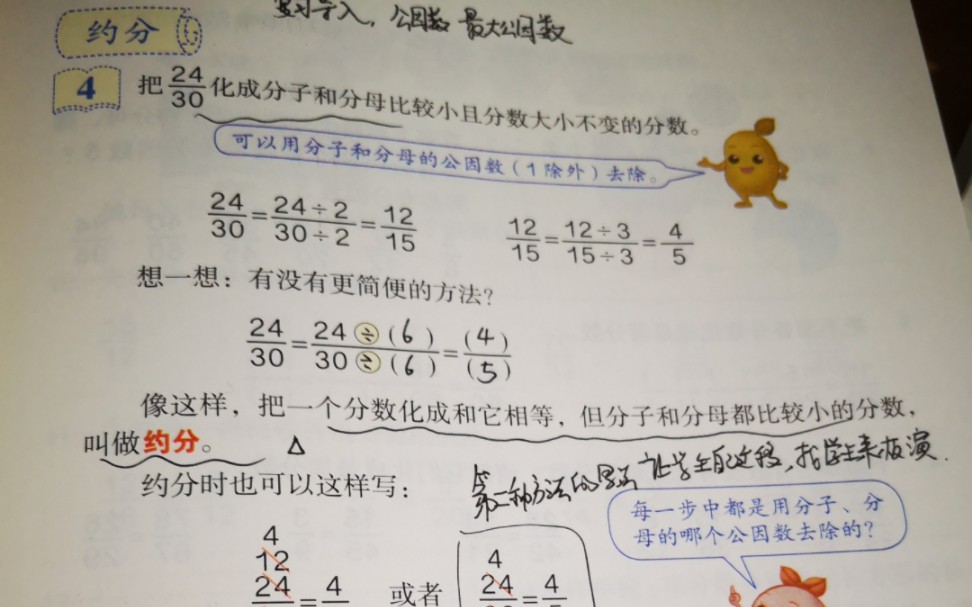 复习导入，公因数 最大公因数
约分
4 把24/30化成分子和分母比较小且分数大小不变的分数。
可以用分子和分母的公因数（1除外）去除。
24/30=24÷2/30÷2=12/15 12/15=12÷3/15÷3=4/5
想一想：有没有更简便的方法？
24/30=24÷(6)/30÷(6)=(4)/(5)
像这样，把一个分数化成和它相等，但分子和分母都比较小的分数，
叫做约分。 △
约分时也可以这样写：
第二种方法的 让学生 ，指学生来板演.
每一步中都是用分子、分
母的哪个公因数去除的？
4
12
24 = 4 或者
4
24 = 4